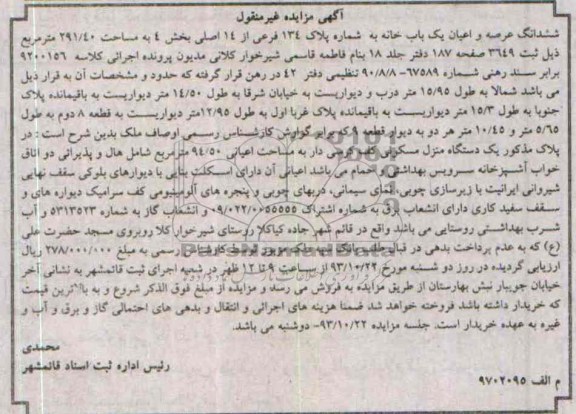 آگهی مزایده غیرمنقول
ششدانگ عرصه و اعیان یک باب خانه به شماره پلاک ۱۳۴ فرعی از ۱۴ اصلی بخش ۴ به مساحت ۲۹۱/۴۰ مترمربع
ذیل ثبت ۳۶۴۹ صفحه ۱۸۷ دفتر جلد ۱۸ بنام فاطمه قاسمی شیرخوار کلائی مدیون پرونده اجرائی کلاسه ۹۲۰۰۱۵۶
برابر سند رهنی شماره ۶۷۵۸۹-۹۰/۸/۸ تنظیمی دفتر ۴۲ در رهن قرار گرفته که حدود و مشخصات آن به قرار ذیل
می باشد شمالا به طول ۱۵/۹۵ متر درب و دیواریست به خیابان شرقا به طول ۱۴/۵۰ متر دیواریست به باقیمانده پلاک
جنوبا به طول ۱۵/۳ متر دیواریست به باقیمانده پلاک غربا اول به طول ۱۲/۹۵متر دیواریست به قطعه ۸ دوم به طول
۵/۶۵ متر و ۱۰/۴۵ متر هر دو به دیوار قطعه ۸ که برابر گزارش کارشناس رسمی اوصاف ملک بدین شرح است : در
پلاک مذکور یک دستگاه منزل مسکونی کف کرسی دار به مساحت اعیانی ۹۴/۵۰ مترمربع شامل هال و پذیرائی دو اتاق
خواب آشپزخانه سرویس بهداشتی و حمام می باشد اعیانی آن دارای اسکلت بنایی با دیوارهای بلوکی سقف نهایی
شیروانی ایرانیت با زیرسازی چوبی، نمای سیمانی، دربهای چوبی و پنجره های آلومینیومی کف سرامیک دیواره های و
سقف سفید کاری دارای انشعاب برق به شماره اشتراک ۰۹/۰۲۲/۰۰۵۵۵۵۵ و انشعاب گاز به شماره ۵۳۱۳۵۲۳ و آب
شرب بهداشتی روستایی می باشد واقع در قائم شهر جاده کیاکلا روستای شیرخوار کلا روبروی مسجد حضرت علی
(ع) که به عدم پرداخت بدهی در قبال طلب بانک ملک مزبور توسط کارشناس رسمی به مبلغ ۲۷۸/۰۰۰/۰۰۰ ریال
ارزیابی گردیده در روز دو شنبه مورخ ۹۳/۱۰/۲۲ از ساعت ۹ تا ۱۲ ظهر در شعبه اجرای ثبت قائمشهر به نشانی آخر
خیابان جویبار نبش بهارستان از طریق مزایده به فروش می رسد و مزایده از مبلغ فوق الذکر شروع و به بالاترین قیمت
که خریدار داشته باشد فروخته خواهد شد ضمنا هزینه های اجرائی و انتقال و بدهی های احتمالی گاز و برق و آب و
غیره به عهده خریدار است. جلسه مزایده ۹۳/۱۰/۲۲- دوشنبه می باشد.
محمدی
رئیس اداره ثبت اسناد قائمشهر
م الف ۹۷۰۲۰۹۵